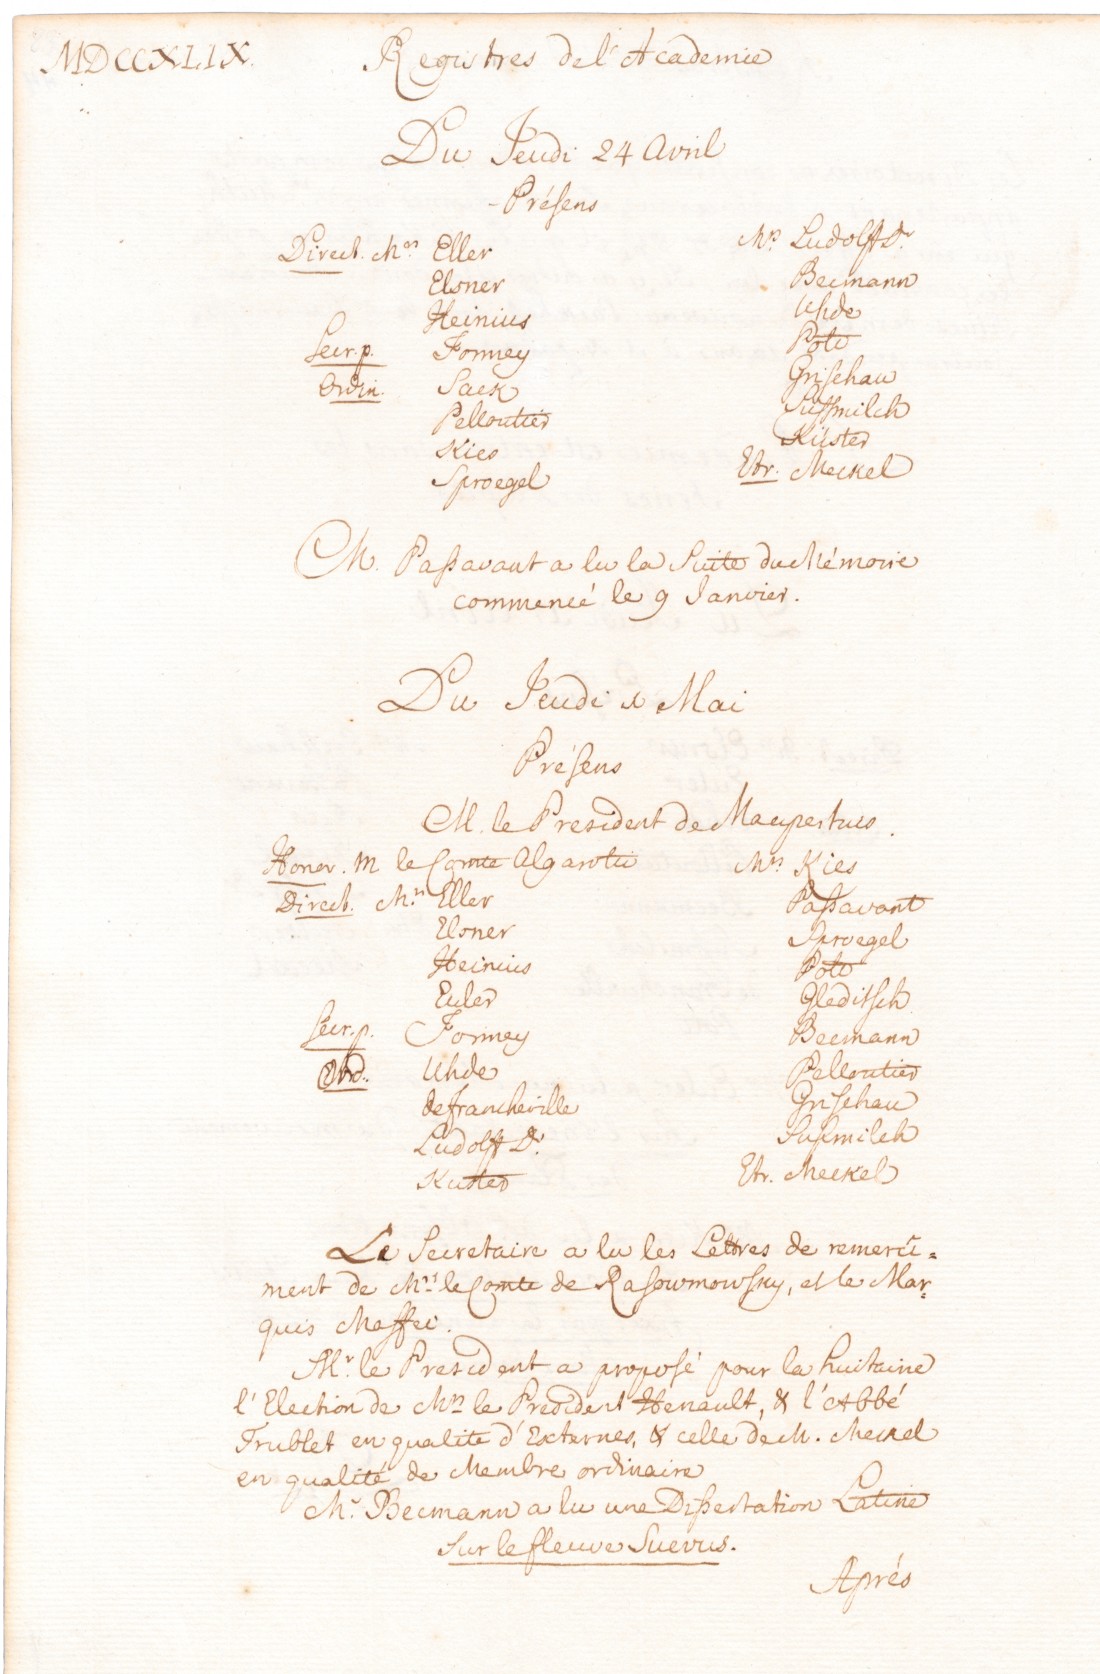 MDCCXLIX.
Registres de l'Academie
Du Jeudi 24 Avril
Présens
Direct. Mrs Eller
Elsner
Heinius
Secr. p. Formey
Ordin. Sack
Pelloutier
Kies
Sproegel
Mrs. Ludolff Dr
Becmann
Uhde
Pott
Grischau
Sussmilch
Küster
Etr. Meckel
M. Passavant a lu la Suite du Mémoire
commencé le 9 Janvier.
Du Jeudi 1 Mai
Présens
M. le President de Maupertuis.
Honor. M le Comte Algarotti
Direct. Mrs Eller
Elsner
Heinius
Euler
Secr. p. Formey
Ord. Uhde
de Francheville
Ludolff Dr.
Kuster
Mrs Kies
Passavant
Sproegel
Pott
Gleditsch
Becmann
Pelloutier
Grischau
Susmilch
Etr. Meckel
Le Secretaire a lu les Lettres de remerci=
ment de Mrs le Comte de Rasoumowsky, et le Mar=
quis Maffei.
Mr. le President a proposé pour la huitaine
l'Election de Mrs le President Henault, & l'Abbé
Trublet en qualité d'Externes, & celle de M. Meckel
en qualité de Membre ordinaire
Mr. Becmann a lu une Dissertation Latine
sur le fleuve Suevus.
Aprés